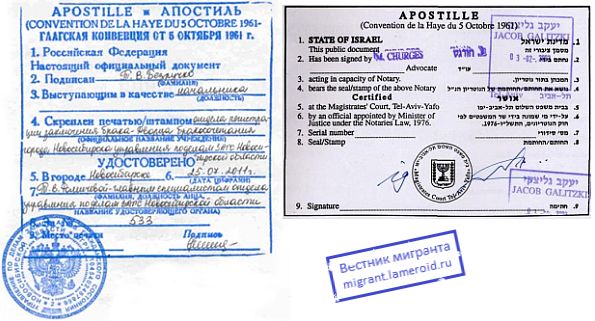 APOSTILLE • АПОСТИЛЬ
(CONVENTION DE LA HAYE DU 5 OCTOBRE 1961-
ГЛАГСКАЯ КОНВЕНЦИЯ ОТ 5 ОКТЯБРЯ 1961 Г.)
1. Российская Федерация
Настоящий официальный документ
2. Подписан Т.В.
(ФАМИЛИЯ)
3. Выступающим в качестве начальника
(ДОЛЖНОСТЬ)
4. Скреплен печатью/штампом отдела регистра-
ции заключения брака-Дворца бракосочетания
(ОФИЦИАЛЬНОЕ НАЗВАНИЕ УЧРЕЖДЕНИЯ)
города Новосибирска управления по делам ЗАГС Новоси-
бирской области
УДОСТОВЕРЕНО
5. В городе Новосибирске 6. 25.07.2011г.
(ДАТА ЦИФРАМИ)
7. главным специалистом отдела
(ФАМИЛИЯ, ДОЛЖНОСТЬ ЛИЦА,
управления по делам ЗАГС Новосибирской области
НАЗВАНИЕ УДОСТОВЕРЯЮЩЕГО ОРГАНА)
533
9. Место печати Подпись
APOSTILLE
(Convention de la Haye du 5 Octobre 1961)
1. STATE OF ISRAEL
This public document
2. Has been signed by M. CHURGES
Advocate
3. acting in capacity of Notary.
4. bears the seal/stamp of the above Notary
Certified
5. at the Magistrates' Court, Tel-Aviv-Yafo
6. by an official appointed by Minister of
Justice under the Notaries Law, 1976.
7. Serial number
8. Seal/Stamp
9. Signature
יעקב גליצקי
JACOB GALITZKI
מדינת ישראל .1
מסמך ציבורי זה
עו"ד
המכהן בתור נוטריון. .3
אושר
בבית משפט השלום בתל-אביב-יפו .5
הנוטריונים, התשל"ו-1976.
מס' סידורי .7
החותם/החותמת .8
חתימה .9
יעקב גליצקי
JACOB GALITZKI
Вестник мигранта
migrant.lameroid.ru